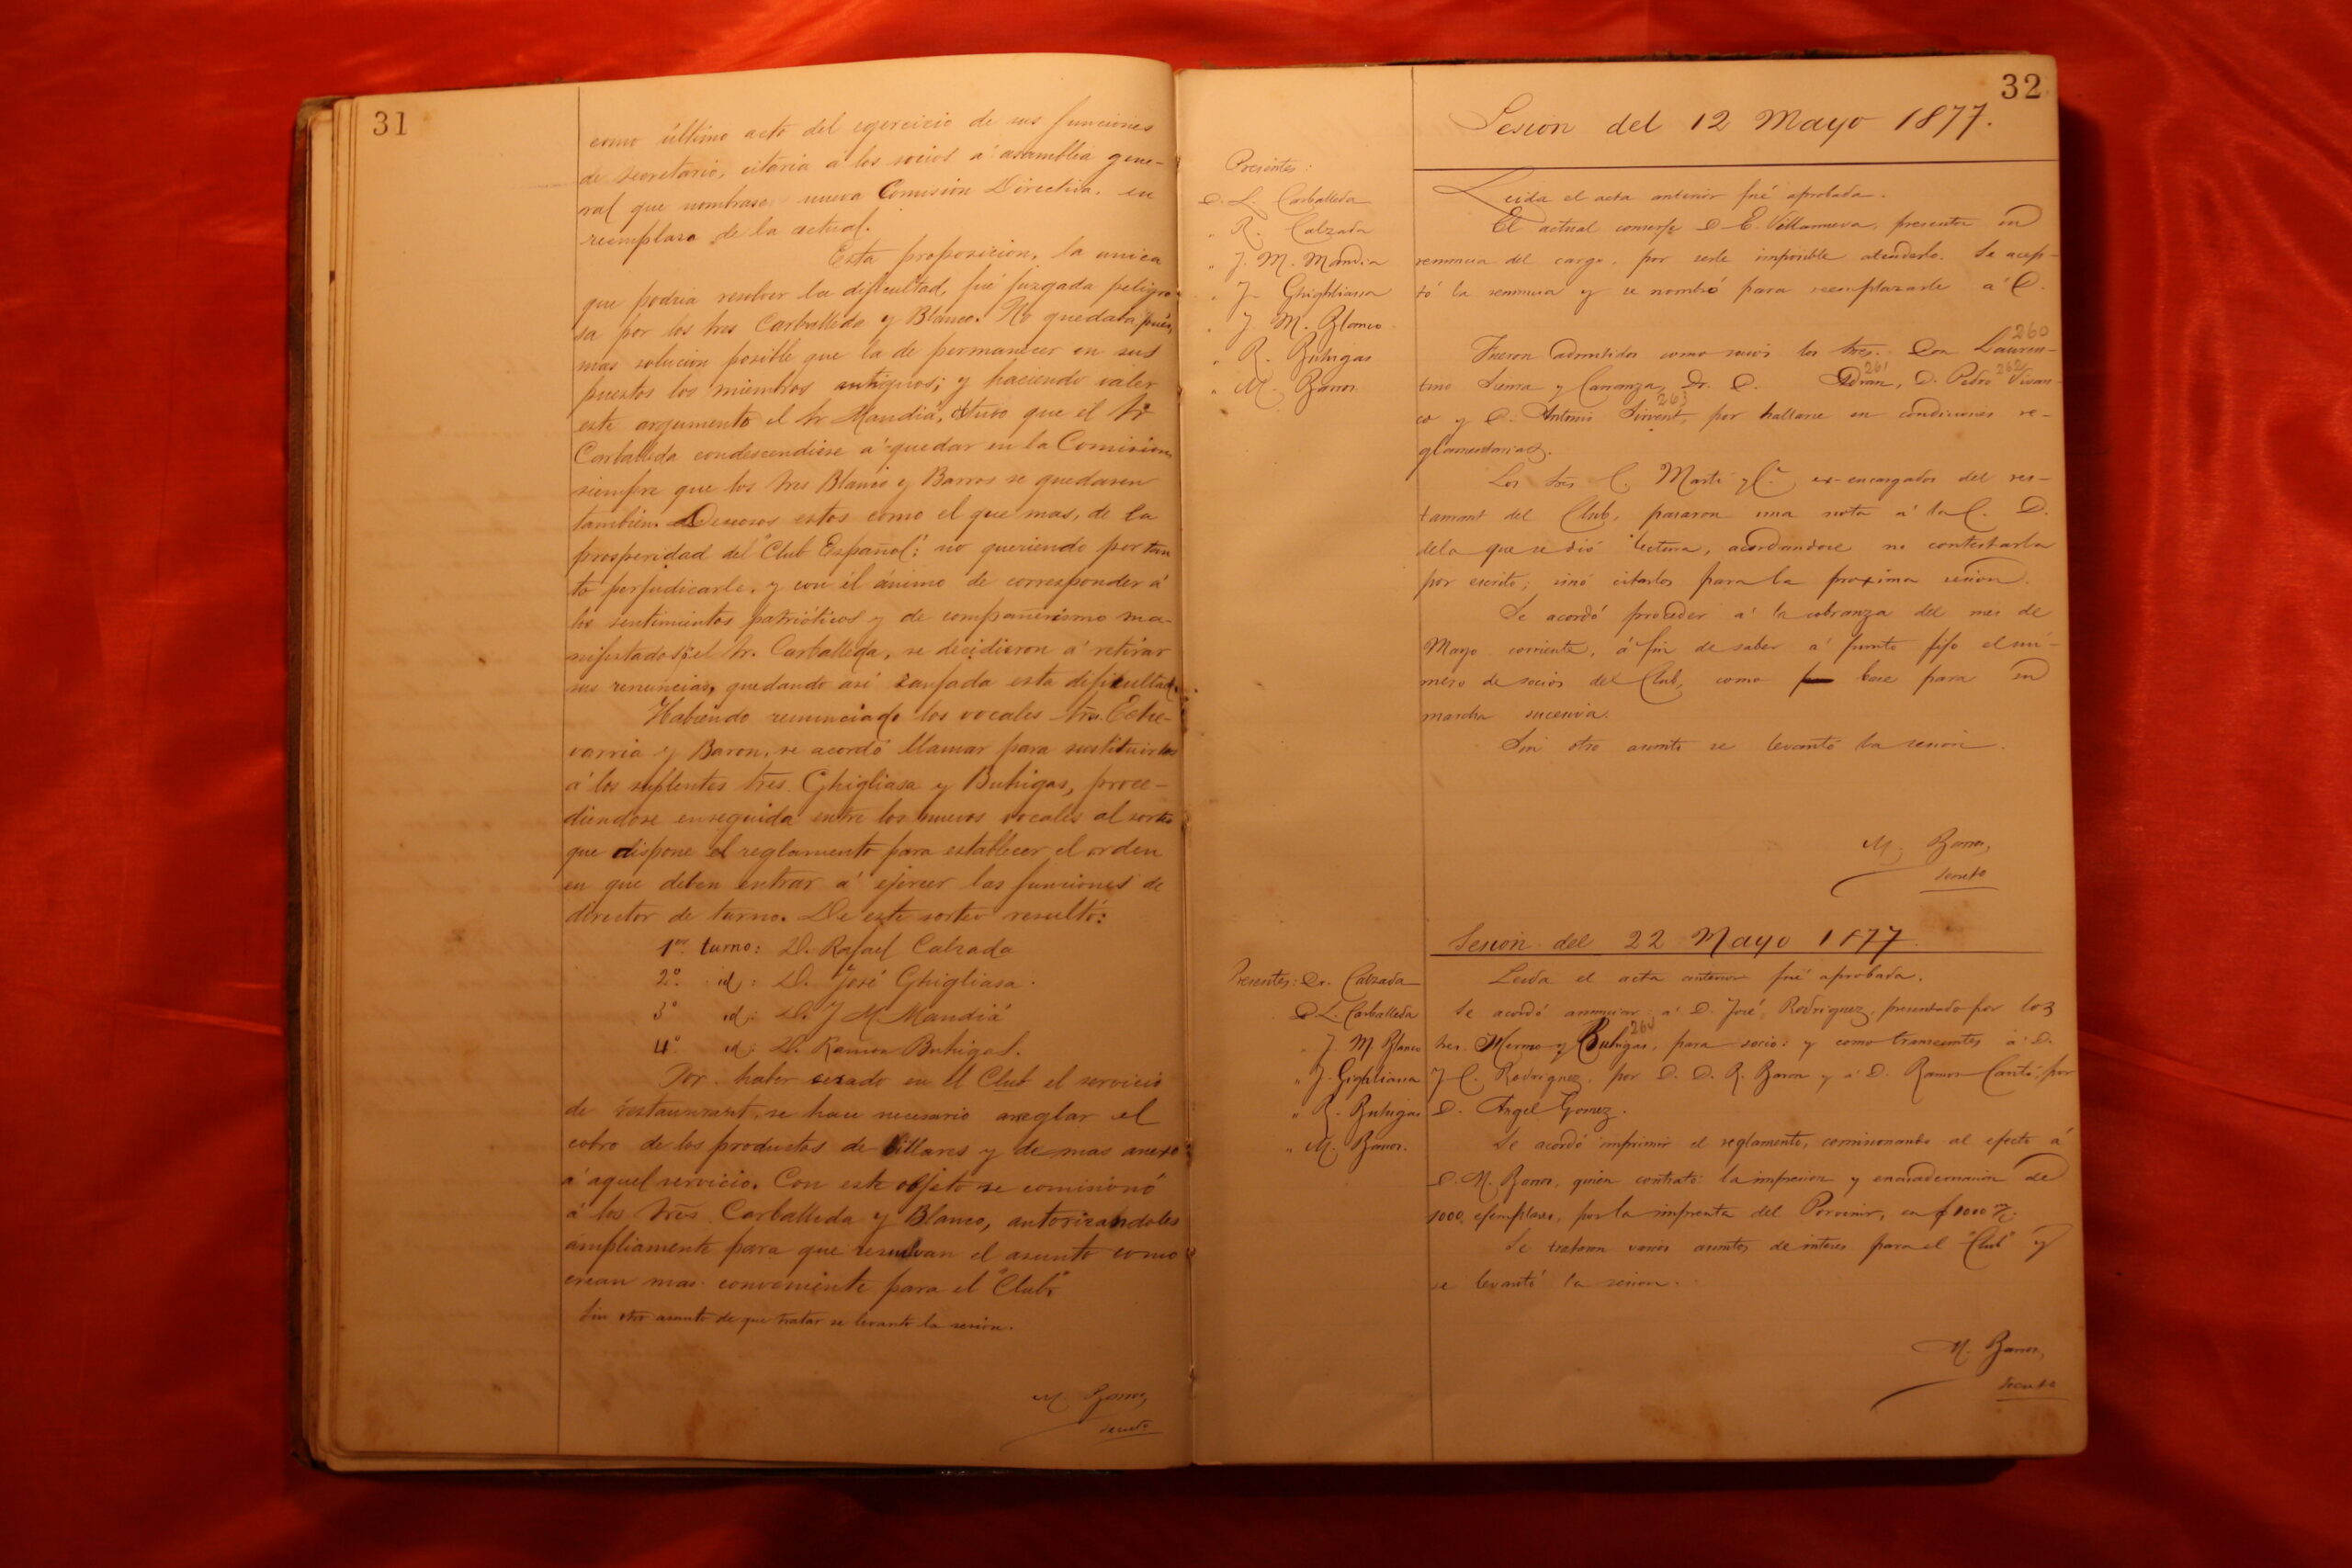 31
como último acto del egercicio de sus funciones
de secretario, citaria á los socios á asamblea gene-
ral que nombrase nueva Comision Directiva, en
reemplaso de la actual.
Esta proposicion, la unica
que podria resolver la dificultad, fué juzgada peligro-
sa por los Sres Carballeda y Blanco. No quedaba, pues,
mas solucion posible que la de permanecer en sus
puestos los miembros antiguos; y haciendo valer
este argumento el Sr Mandiá, obtuvo que el Sr
Carballeda condescendiese á quedar en la Comision,
siempre que los Sres Blanco y Barros se quedasen
tambien. Deseosos estos como el que mas, de la
prosperidad del "Club Español": no queriendo por tan
to perjudicarle, y con él ánimo de corresponder á
los sentimientos patrióticos y de compañerismo ma-
nifestados el Sr. Carballeda, se decidieron á retirar
sus renuncias, quedando asi zanjada esta dificultad.
Habiendo renunciado los vocales Sres. Eche-
varria y Baron, se acordó llamar para sustituirlos
á los suplentes Sres. Ghigliasa y Buhigas, proce-
diendose enseguida entre los nuevos vocales al sorteo
que dispone el reglamento para establecer el orden
en que deben entrar á ejercer las funciones de
director de turno. De este sorteo resultó:
1er. turno: D. Rafael Calzada
2º. id: D. José Ghigliasa.
3º id: D. J M. Mandiá
4º. id: D. Ramon Buhigas.
Por haber cesado en el Club el servicio
de restaurant, se hace necesario arreglar el
cobro de los productos de billares y demas anexo
á aquel servicio. Con este objeto se comisionó
á los Sres. Carballeda y Blanco, autorizandoles
ampliamente para que resuelvan el asunto como
crean mas conveniente para el "Club."
Sin otro asunto de que tratar se levantó la sesion.
M. Barros,
secreto
32
Sesion del 12 Mayo 1877.
Presentes:
D. L. Carballeda
" R. Calzada
" J. M. Mandia
" J. Ghighliassa
" J M. Blanco
" R. Buhigas
" M. Barros
Leida el acta anterior fué aprobada.
El actual conserje D. E. Villanueva, presenta su
renuncia del cargo, por serle imposible atenderlo. Se acep-
tó la renuncia y se nombró para reemplazarle á D.
Fueron admitidos como socios los Sres. Don Lauren- 260
tino Sierra y Carranza, Dr. D. Adran, 261 D. Pedro Vivan- 262
co y D. Antonio Sirvent, 263 por hallarse en condiciones re-
glamentarias.
Los Sres C. Marti y Cª. ex-encargados del res-
taurant del Club, pasaron una nota á la C. D.
dela que se dió lectura, acordandose no contestarla
por escrito; sinó citarlos para la proxima sesion.
Se acordó proceder á la cobranza del mes de
Mayo corriente, á fin de saber á punto fijo el nú-
mero de socios del Club, como base para su
marcha sucesiva.
Sin otro asunto se levantó la sesion.
M. Barros,
secreto
Sesion del 22 Mayo 1877.
Presentes: Dr. Calzada
D L. Carballeda
" J. M Blanco
" J. Gighliassa
" R. Buhigas
" M. Barros.
Leida el acta anterior fué aprobada.
Se acordó anunciar á D. José Rodriguez, presentado por los
Sres. Hermo y Buhigas, 264 para socio: y como transeuntes á D.
J C. Rodriguez, por D. D. R. Baron y á D. Ramon Cantó, por
D. Angel Gomez.
Se acordó imprimir el reglamento, comisionando al efecto á
D. M. Barros, quien contrató la impresion y encuadernacion de
1000 ejemplares, por la imprenta del Porvenir, en $ 1000 m/c.
Se trataron varios asuntos de interes para el "Club" y
se levantó la sesion.
M. Barros,
secreto